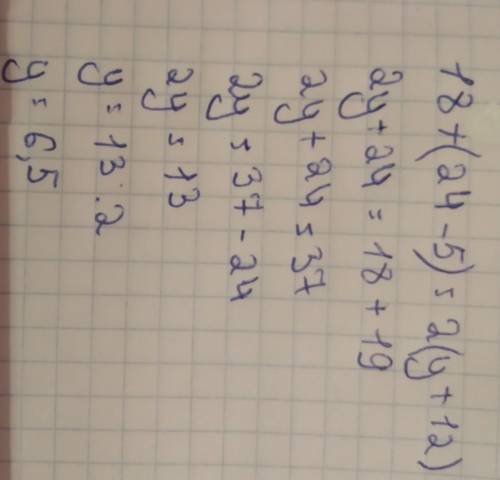 18+(24-5)=2(y+12)
2y+24=18+19
2y+24=37
2y=37-24
2y=13
y=13:2
y=6,5